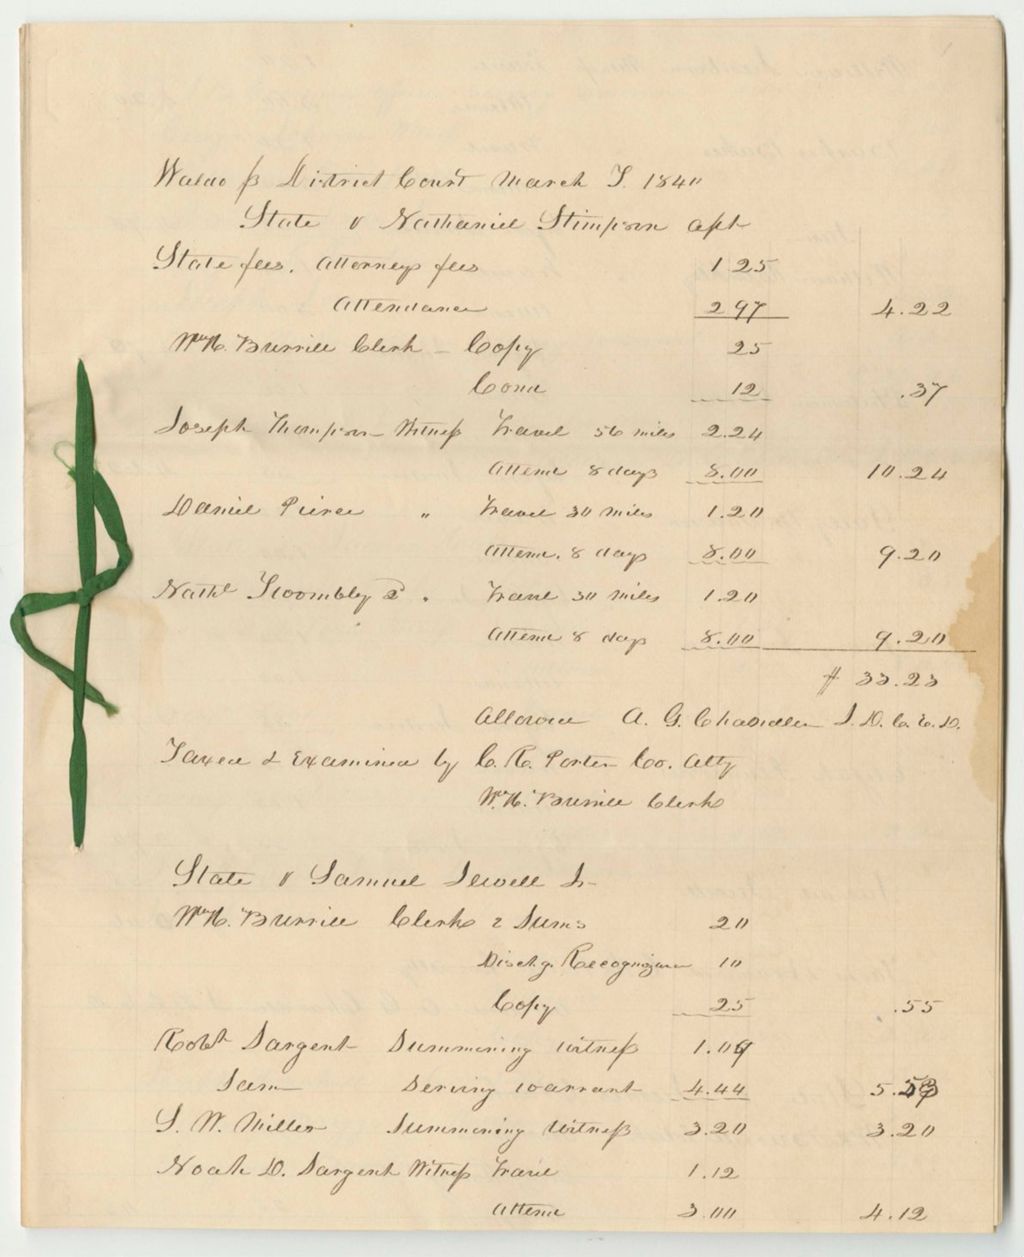 Waldo ss District Court March T. 1840
State v Nathaniel Stimpson apt
State fees. Attorneys fees 1 25
Attendance 2 97 4.22
Wm H. Burrill Clerk - Copy 25
Cond 12 .37
Joseph Thompson Witness Travel 56 miles 2.24
Attend 8 days 8.00 10.24
Daniel Pierce " Travel 30 miles 1.20
Attend. 8 days 8.00 9.20
Nathl Twombley 2d " Travel 30 miles 1.20
Attend 8 days 8.00 9.20
$ 33.23
Allowed A. G. Chandler J. D. C. E. D.
Taxed & Examined by C. R. Porter Co. Atty
Wm H. Burrill Clerk
State v Samuel Sewell Jr
Wm H. Burrill Clerk 2 Sums 20
Dischg. Recognizance 10
Copy 25 .55
Robt Sargent Summoning witness 1.09
Same Serving warrant 4.44 5.53
S. W. Miller Summoning Witness 3.20 3.20
Noah D. Sargent Witness Travel 1.12
Attend 3.00 4.12